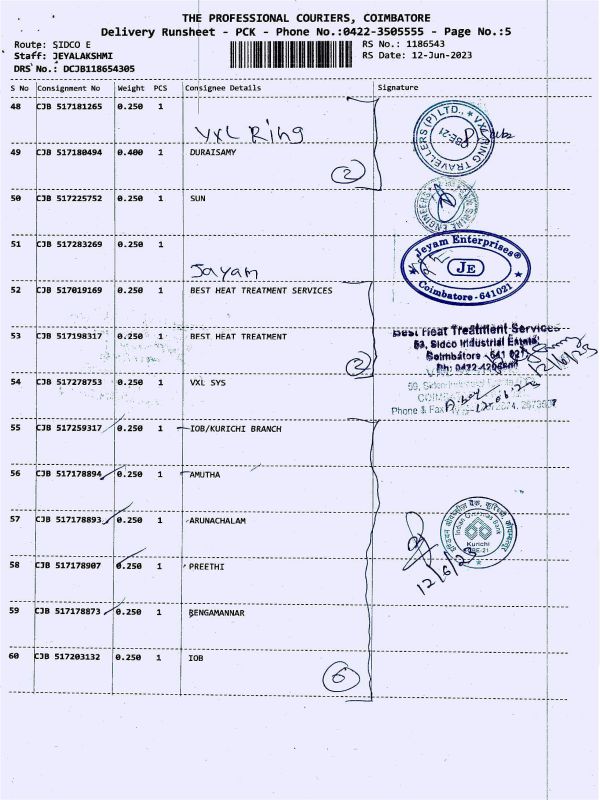 THE PROFESSIONAL COURIERS, COIMBATORE
Delivery Runsheet - PCK - Phone No.:0422-3505555 - Page No.:5
Route: SIDCO E
RS No.: 1186543
Staff: JEYALAKSHMI
RS Date: 12-Jun-2023
DRS No.: DCJB118654305
S No Consignment No Weight PCS Consignee Details Signature
48 CJB 517181265 0.250 1
VXL Ring
VXL RING TRAVELLERS (P) LTD.,
CBE-21
49 CJB 517180494 0.400 1 DURAISAMY
2
50 CJB 517225752 0.250 1 SUN
ENGINEERS
51 CJB 517283269 0.250 1
Jayam
Jeyam Enterprises®
JE
Coimbatore - 641021
52 CJB 517019169 0.250 1 BEST HEAT TREATMENT SERVICES
53 CJB 517198317 0.250 1 BEST HEAT TREATMENT
2
Best Heat Treatment Services
53, Sidco Industrial Estate
Coimbatore - 641 021
12/6/23
54 CJB 517278753 0.250 1 VXL SYS
Phone & Fax
12.06.23
55 CJB 517259317 0.250 1 IOB/KURICHI BRANCH
56 CJB 517178894 0.250 1 AMUTHA
57 CJB 517178893 0.250 1 ARUNACHALAM
Indian Overseas Bank
Kurichi
CBE-21
12/6/23
58 CJB 517178907 0.250 1 PREETHI
59 CJB 517178873 0.250 1 RENGAMANNAR
60 CJB 517203132 0.250 1 IOB
6